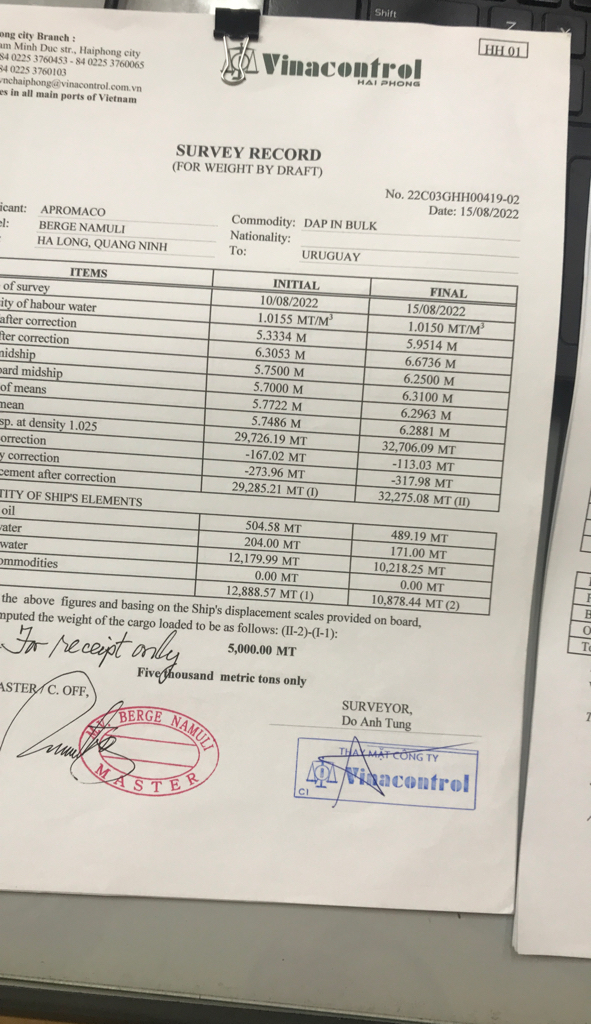 Shift
Z
ong city Branch :
am Minh Duc str., Haiphong city
84 0225 3760453 - 84 0225 3760065
84 0225 3760103
vnchaiphong@vinacontrol.com.vn
es in all main ports of Vietnam
HH 01
Vinacontrol
HAI PHONG
SURVEY RECORD
(FOR WEIGHT BY DRAFT)
No. 22C03GHH00419-02
Date: 15/08/2022
icant: APROMACO
el: BERGE NAMULI
HA LONG, QUANG NINH
Commodity: DAP IN BULK
Nationality:
To: URUGUAY
ITEMS INITIAL FINAL
of survey 10/08/2022 15/08/2022
ity of habour water 1.0155 MT/M³ 1.0150 MT/M³
after correction 5.3334 M 5.9514 M
fter correction 6.3053 M 6.6736 M
nidship 5.7500 M 6.2500 M
ard midship 5.7000 M 6.3100 M
of means 5.7722 M 6.2963 M
mean 5.7486 M 6.2881 M
sp. at density 1.025 29,726.19 MT 32,706.09 MT
orrection -167.02 MT -113.03 MT
y correction -273.96 MT -317.98 MT
cement after correction 29,285.21 MT (I) 32,275.08 MT (II)
TITY OF SHIP'S ELEMENTS
oil 504.58 MT 489.19 MT
vater 204.00 MT 171.00 MT
water 12,179.99 MT 10,218.25 MT
ommodities 0.00 MT 0.00 MT
12,888.57 MT (1) 10,878.44 MT (2)
the above figures and basing on the Ship's displacement scales provided on board,
mputed the weight of the cargo loaded to be as follows: (II-2)-(I-1):
For receipt only 5,000.00 MT
Five thousand metric tons only
ASTER / C. OFF,
SURVEYOR,
Do Anh Tung
BERGE NAMULI
MASTER
THAY MẶT CÔNG TY
Vinacontrol
C1